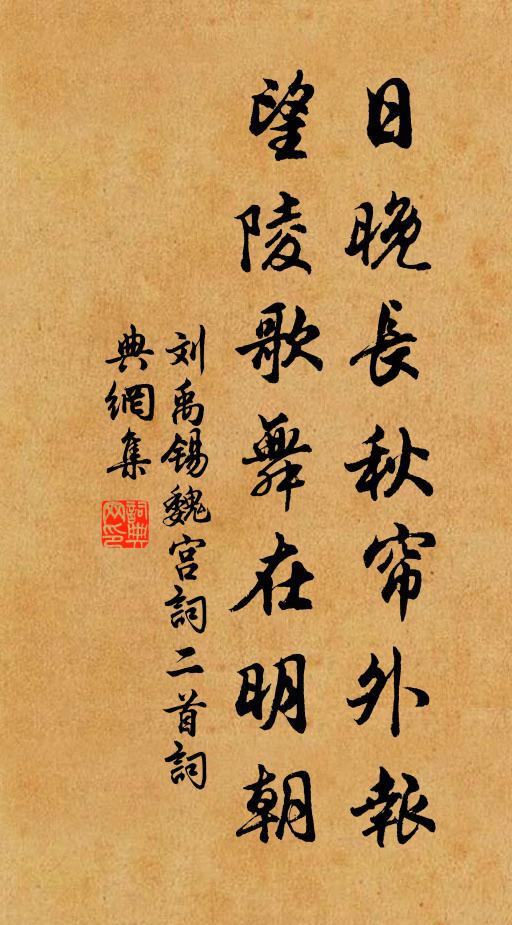 日晚長秋帘外報
望陵歌舞在明朝
刘禹锡魏宫詞二首詞
典網集
詞典
网印